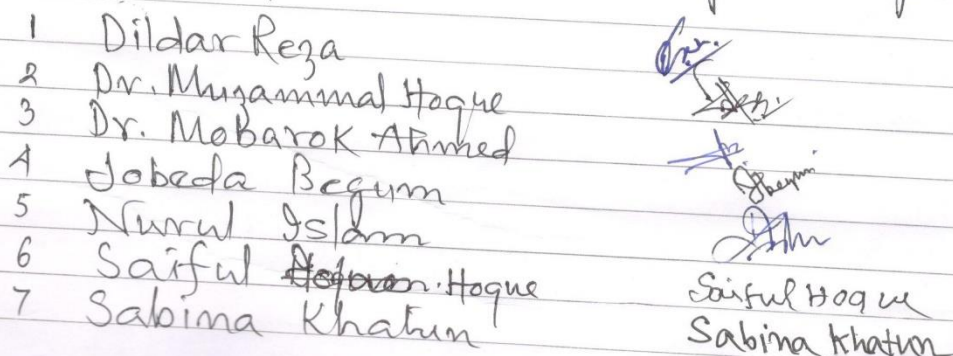 1 Dildar Reza
2 Dr. Muzammal Hoque
3 Dr. Mobarok Ahmed
4 Jobeda Begum
5 Nurul Islam
6 Saiful Hoque Saiful Hoque
7 Sabina Khatun Sabina Khatun